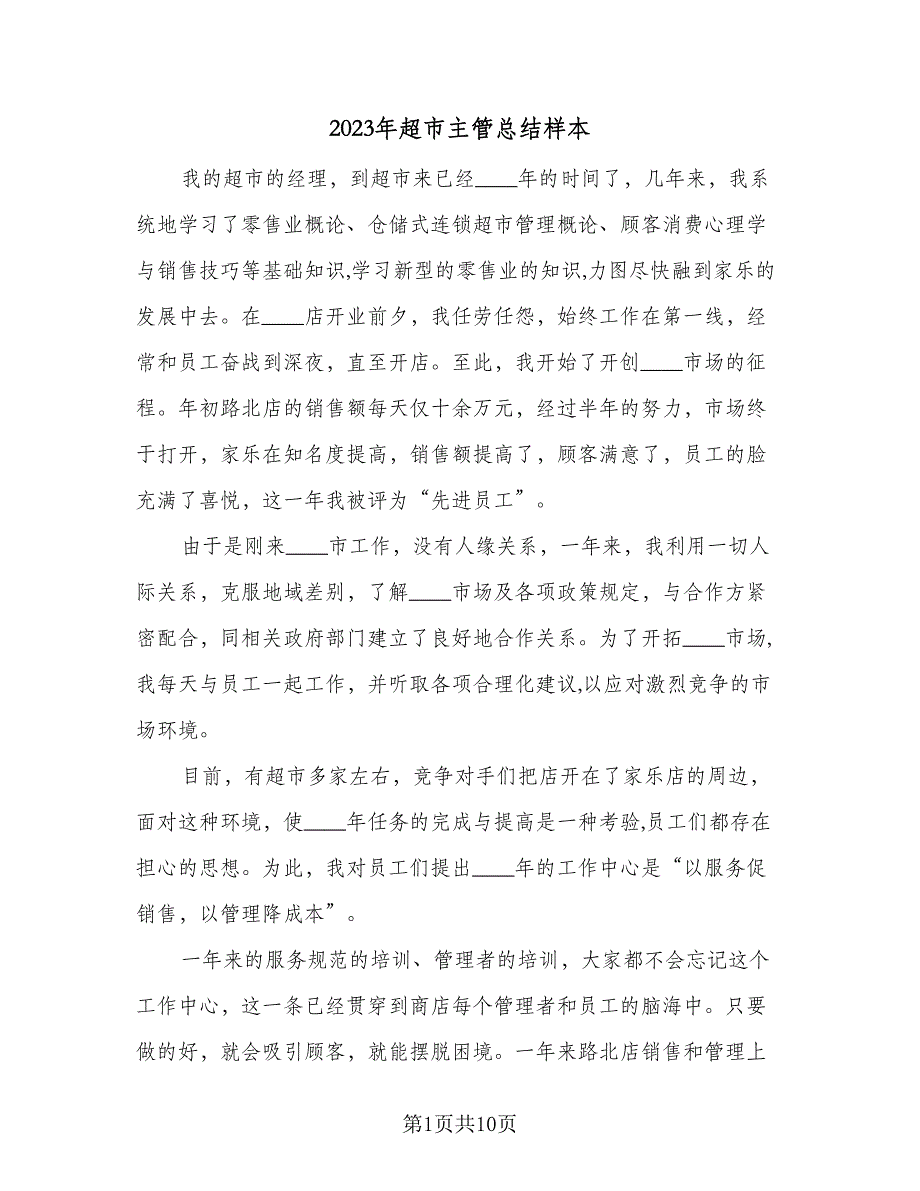 2023年超市主管总结样本
我的超市的经理，到超市来已经____年的时间了，几年来，我系
统地学习了零售业概论、仓储式连锁超市管理概论、顾客消费心理学
与销售技巧等基础知识,学习新型的零售业的知识,力图尽快融到家乐的
发展中去。在____店开业前夕，我任劳任怨，始终工作在第一线，经
常和员工奋战到深夜，直至开店。至此，我开始了开创____市场的征
程。年初路北店的销售额每天仅十余万元，经过半年的努力，市场终
于打开，家乐在知名度提高，销售额提高了，顾客满意了，员工的脸
充满了喜悦，这一年我被评为“先进员工”。
由于是刚来____市工作，没有人缘关系，一年来，我利用一切人
际关系，克服地域差别，了解____市场及各项政策规定，与合作方紧
密配合，同相关政府部门建立了良好地合作关系。为了开拓____市场,
我每天与员工一起工作，并听取各项合理化建议,以应对激烈竞争的市
场环境。
目前，有超市多家左右，竞争对手们把店开在了家乐店的周边，
面对这种环境，使____年任务的完成与提高是一种考验,员工们都存在
担心的思想。为此，我对员工们提出____年的工作中心是“以服务促
销售，以管理降成本”。
一年来的服务规范的培训、管理者的培训，大家都不会忘记这个
工作中心，这一条已经贯穿到商店每个管理者和员工的脑海中。只要
做的好，就会吸引顾客，就能摆脱困境。一年来路北店销售和管理上
第1页共10页